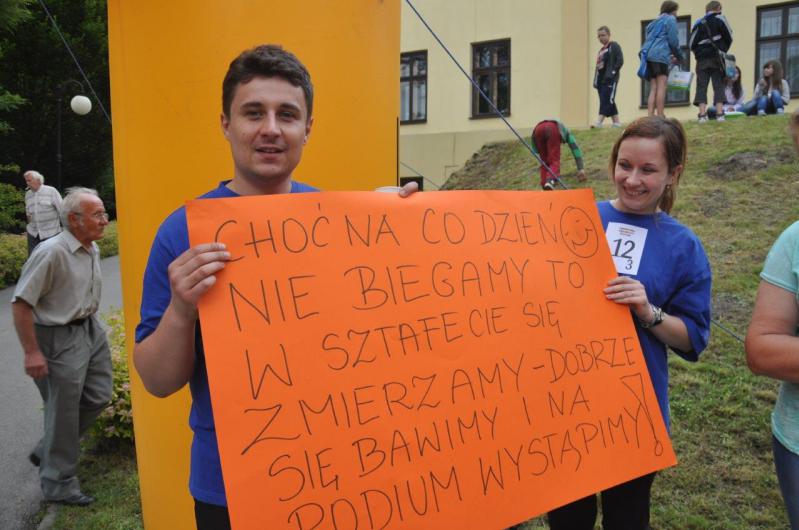 CHOĆ NA CO DZIEŃ
NIE BIEGAMY TO
W SZTAFECIE SIĘ
ZMIERZAMY - DOBRZE
SIĘ BAWIMY I NA
PODIUM WYSTĄPIMY!
12
3